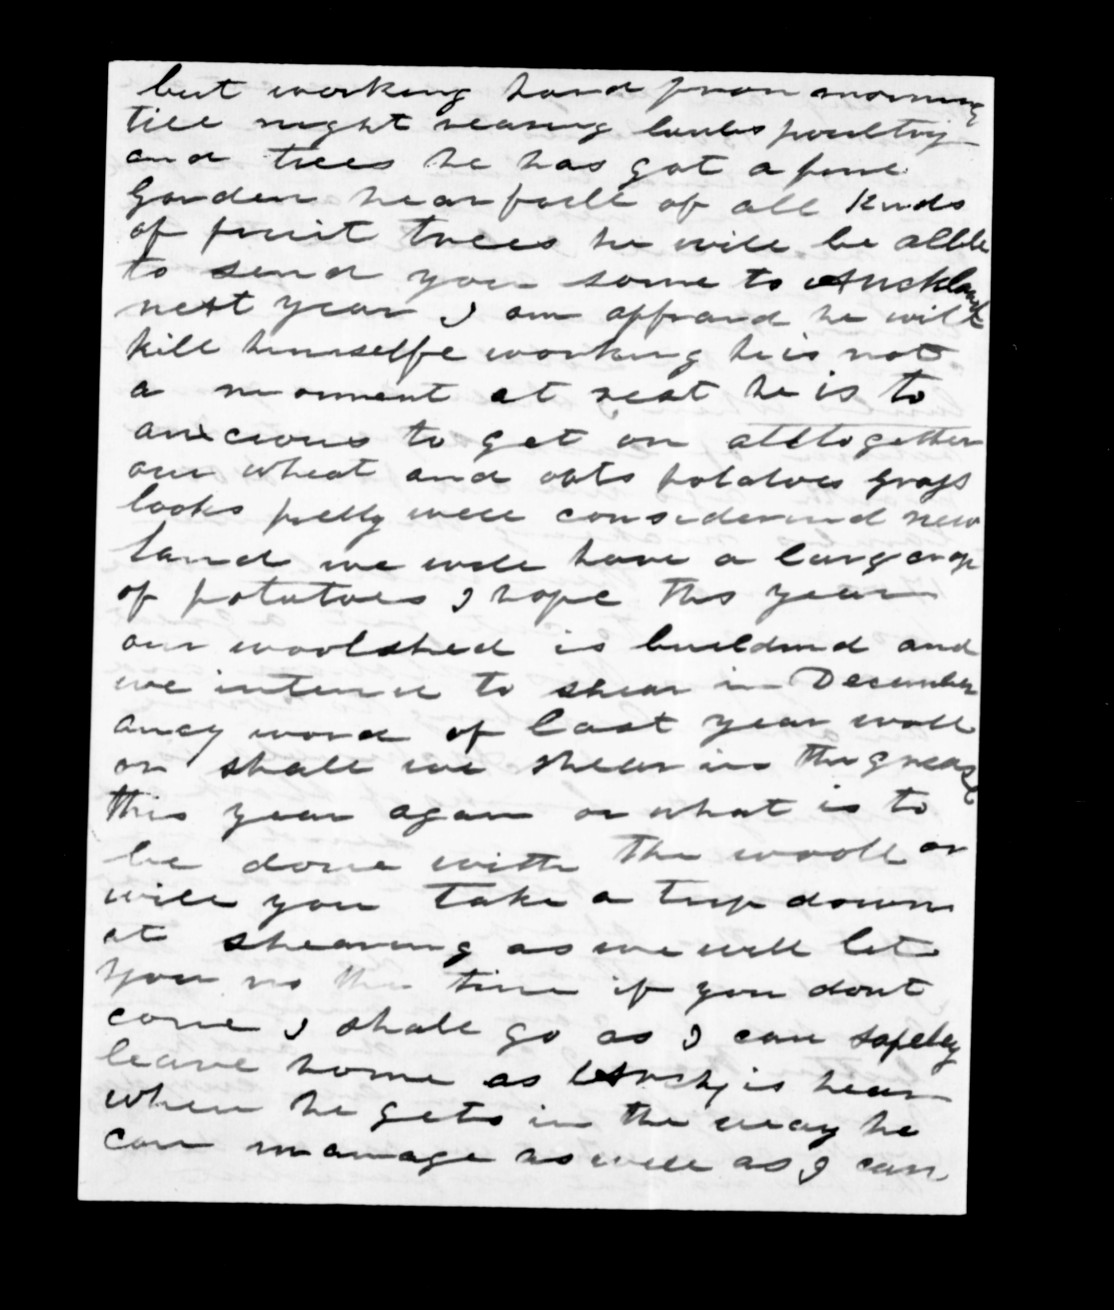 but working hard from morning
till night rearing lambs poultry
and trees he has got a fine
Garden hear full of all kinds
of fruit trees he will be allble
to send you some to Auckland
next year I am affraid he will
kill himselfe working he is not
a moment at rest he is to
anxcious to get on alltogether
our wheat and oats potatoes grass
looks pretty well considerind new
land we will have a larg crop
of potatoes I hope this year
our woolshed is buildind and
we intend to shear in December
aney word of last year wooll
or shall we shear in the grease
this year again or what is to
be done with the wooll or
will you take a trip down
at shearing as we will let
you no the time if you dont
come I shall go as I can safeley
leave home as Archy is hear
when he gets in the way he
can manage as well as I can